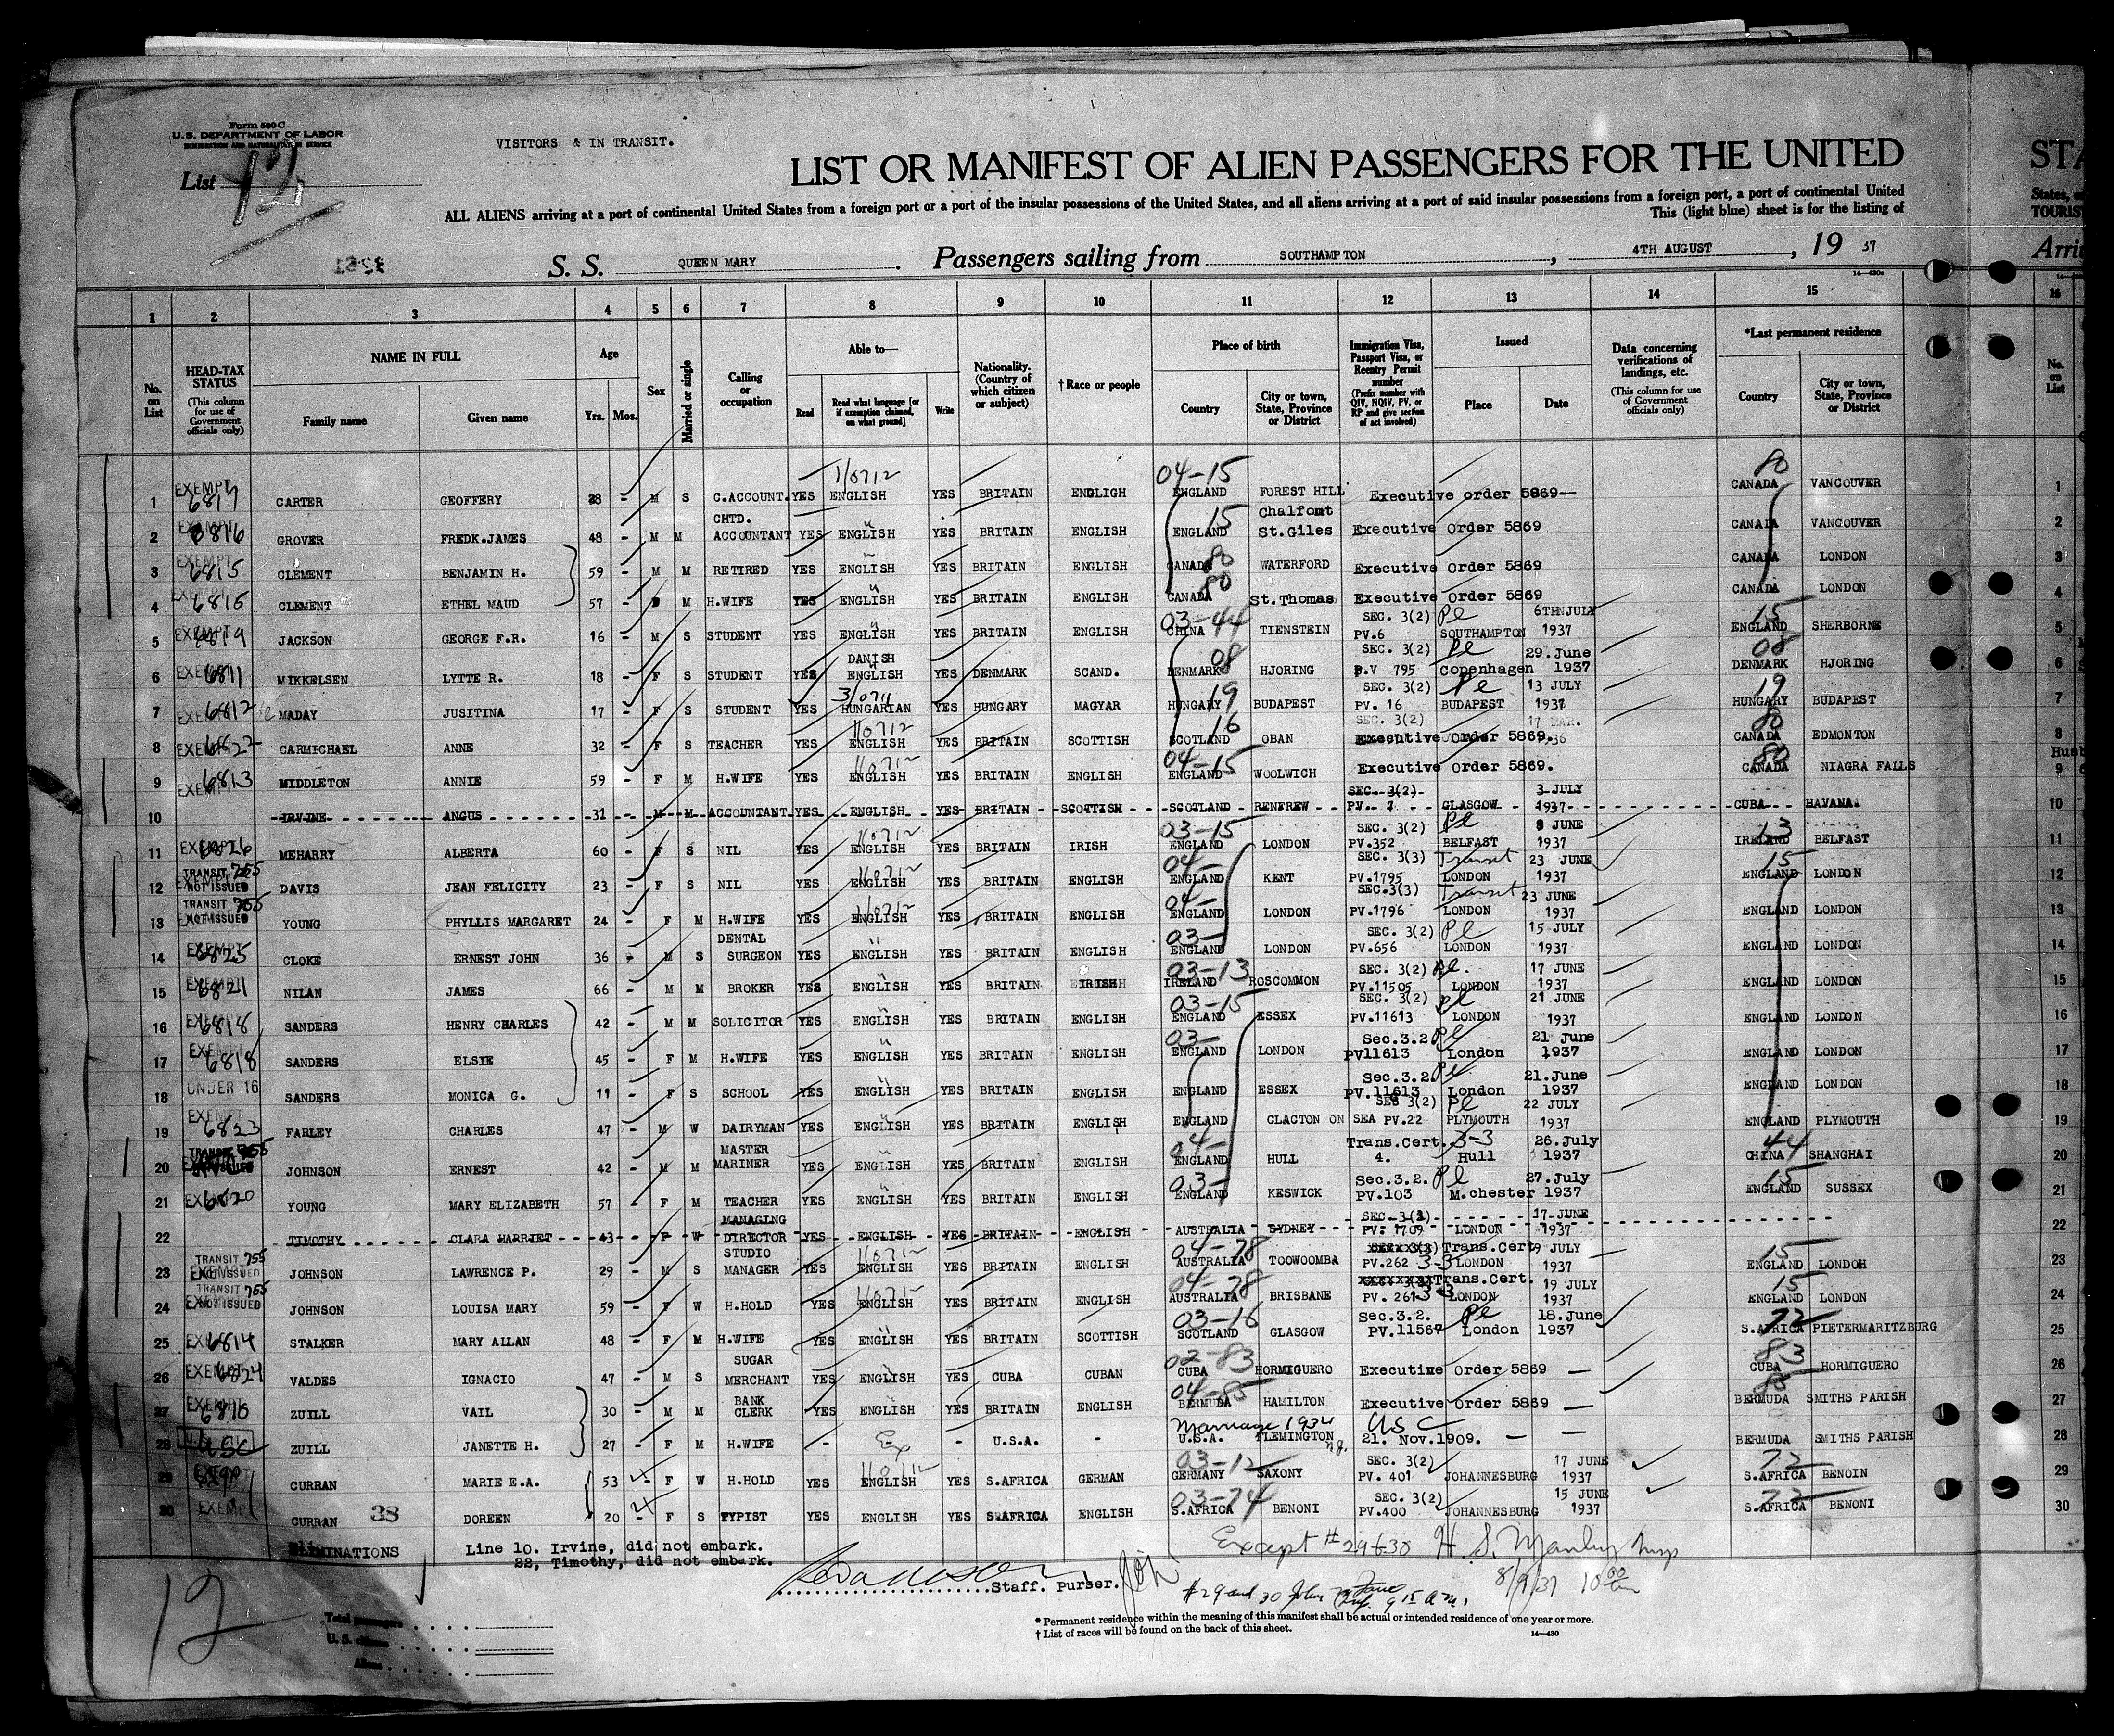 Form 500 C
U.S. DEPARTMENT OF LABOR
IMMIGRATION AND NATURALIZATION SERVICE
VISITORS & IN TRANSIT.
List 12
LIST OR MANIFEST OF ALIEN PASSENGERS FOR THE UNITED STA
ALL ALIENS arriving at a port of continental United States from a foreign port or a port of the insular possessions of the United States, and all aliens arriving at a port of said insular possessions from a foreign port, a port of continental United States, o
This (light blue) sheet is for the listing of TOURIS
S. S. QUEEN MARY. Passengers sailing from SOUTHAMPTON, 4TH AUGUST, 19 37 Arri
1 2 3 4 5 6 7 8 9 10 11 12 13 14 15 16
No. on List
HEAD-TAX STATUS (This column for use of Government officials only)
NAME IN FULL Family name Given name
Age Yrs. Mos.
Sex
Married or single
Calling or occupation
Able to— Read Read what language [or if exemption claimed, on what ground] Write
Nationality. (Country of which citizen or subject)
† Race or people
Place of birth Country City or town, State, Province or District
Immigration Visa, Passport Visa, or Reentry Permit number (Prefix number with QIV, NQIV, PV, or RP and give section of act involved)
Issued Place Date
Data concerning verifications of landings, etc. (This column for use of Government officials only)
*Last permanent residence Country City or town, State, Province or District
No. on List
1 EXEMPT 6817 CARTER GEOFFERY 28 - M S C.ACCOUNT. YES ENGLISH YES BRITAIN ENGLIGH 04-15 ENGLAND FOREST HILL Executive order 5869-- 80 CANADA VANCOUVER 1
2 EXEMPT 6816 GROVER FREDK.JAMES 48 - M M CHTD. ACCOUNTANT YES ENGLISH YES BRITAIN ENGLISH 15 ENGLAND Chalfomt St.Giles Executive Order 5869 CANADA VANCOUVER 2
3 EXEMPT 6815 CLEMENT BENJAMIN H. 59 - M M RETIRED YES ENGLISH YES BRITAIN ENGLISH 80 CANADA WATERFORD Executive Order 5869 CANADA LONDON 3
4 EXEMPT 6815 CLEMENT ETHEL MAUD 57 - M H.WIFE YES ENGLISH YES BRITAIN ENGLISH 80 CANADA St.Thomas Executive Order 5869 CANADA LONDON 4
5 EXEMPT 6819 JACKSON GEORGE F.R. 16 - M S STUDENT YES ENGLISH YES BRITAIN ENGLISH 03-44 CHINA TIENSTEIN SEC. 3(2) PV.6 Pl SOUTHAMPTON 6TH JULY 1937 15 ENGLAND SHERBORNE 5
6 EXEMPT 6811 MIKKELSEN LYTTE R. 18 - F S STUDENT YES DANISH ENGLISH YES DENMARK SCAND. 08 DENMARK HJORING SEC. 3(2) P.V 795 Pl Copenhagen 29.June 1937 08 DENMARK HJORING 6
7 EXEMPT 6812 MADAY JUSITINA 17 - F S STUDENT YES HUNGARIAN YES HUNGARY MAGYAR 19 HUNGARY BUDAPEST SEC. 3(2) PV. 16 Pl BUDAPEST 13 JULY 1937 19 HUNGARY BUDAPEST 7
8 EXEMPT 6822 CARMICHAEL ANNE 32 - F S TEACHER YES ENGLISH YES BRITAIN SCOTTISH 16 SCOTLAND OBAN SEC. 3(2) Executive Order 5869. 17 MAR. 80 CANADA EDMONTON 8
9 EXEMPT 6813 MIDDLETON ANNIE 59 - F M H.WIFE YES ENGLISH YES BRITAIN ENGLISH 04-15 ENGLAND WOOLWICH Executive Order 5869. 80 CANADA NIAGRA FALLS 9
10 IRVINE ANGUS 31 M M ACCOUNTANT YES ENGLISH YES BRITAIN SCOTTISH SCOTLAND RENFREW SEC. 3(2) PV. 7 GLASGOW 3 JULY 1937 CUBA HAVANA 10
11 EXEMPT 6826 MEHARRY ALBERTA 60 - F S NIL YES ENGLISH YES BRITAIN IRISH 03-15 ENGLAND LONDON SEC. 3(2) PV.352 Pl BELFAST 8 JUNE 1937 13 IRELAND BELFAST 11
12 TRANSIT 755 NOT ISSUED DAVIS JEAN FELICITY 23 - F S NIL YES ENGLISH YES BRITAIN ENGLISH 04- ENGLAND KENT SEC. 3(3) PV.1795 Transit LONDON 23 JUNE 1937 15 ENGLAND LONDON 12
13 TRANSIT 755 NOT ISSUED YOUNG PHYLLIS MARGARET 24 - F M H.WIFE YES ENGLISH YES BRITAIN ENGLISH 04- ENGLAND LONDON SEC.3(3) PV.1796 Transit LONDON 23 JUNE 1937 ENGLAND LONDON 13
14 EXEMPT 6825 CLOKE ERNEST JOHN 36 - M S DENTAL SURGEON YES ENGLISH YES BRITAIN ENGLISH 03- ENGLAND LONDON SEC. 3(2) PV.656 Pl LONDON 15 JULY 1937 ENGLAND LONDON 14
15 EXEMPT 6821 NILAN JAMES 66 - M M BROKER YES ENGLISH YES BRITAIN IRISH 03-13 IRELAND ROSCOMMON SEC. 3(2) PV.11505 Pl. LONDON 17 JUNE 1937 ENGLAND LONDON 15
16 EXEMPT 6818 SANDERS HENRY CHARLES 42 - M M SOLICITOR YES ENGLISH YES BRITAIN ENGLISH 03-15 ENGLAND ESSEX SEC. 3(2) PV.11613 Pl LONDON 21 JUNE 1937 ENGLAND LONDON 16
17 EXEMPT 6818 SANDERS ELSIE 45 - F M H.WIFE YES ENGLISH YES BRITAIN ENGLISH 03- ENGLAND LONDON Sec.3.2 PV11613 Pl London 21 June 1937 ENGLAND LONDON 17
18 UNDER 16 SANDERS MONICA G. 11 - F S SCHOOL YES ENGLISH YES BRITAIN ENGLISH ENGLAND ESSEX Sec.3.2. PV.11613 Pl London 21.June 1937 ENGLAND LONDON 18
19 EXEMPT 6823 FARLEY CHARLES 47 - M W DAIRYMAN YES ENGLISH YES BRITAIN ENGLISH ENGLAND CLACTON ON SEA SEC 3(2) PV.22 Pl PLYMOUTH 22 JULY 1937 ENGLAND PLYMOUTH 19
20 TRANSIT 755 JOHNSON ERNEST 42 - M M MASTER MARINER YES ENGLISH YES BRITAIN ENGLISH 04- ENGLAND HULL Trans.Cert. 4. 3-3 Hull 26.July 1937 44 CHINA SHANGHAI 20
21 EXEMPT 6820 YOUNG MARY ELIZABETH 57 - F M TEACHER YES ENGLISH YES BRITAIN ENGLISH 03- ENGLAND KESWICK Sec.3.2. PV.103 Pl M.chester 27.July 1937 15 ENGLAND SUSSEX 21
22 TIMOTHY CLARA HARRIET 43 F W MANAGING DIRECTOR YES ENGLISH YES BRITAIN ENGLISH AUSTRALIA SYDNEY PV. 1709 LONDON 17 JUNE 1937 22
23 TRANSIT 755 NOT ISSUED JOHNSON LAWRENCE P. 29 - M S STUDIO MANAGER YES ENGLISH YES BRITAIN ENGLISH 04-78 AUSTRALIA TOOWOOMBA Trans.Cert. PV.262 3-3 LONDON 9 JULY 1937 15 ENGLAND LONDOH 23
24 TRANSIT 755 NOT ISSUED JOHNSON LOUISA MARY 59 - F W H.HOLD YES ENGLISH YES BRITAIN ENGLISH 04-78 AUSTRALIA BRISBANE Trans.Cert. PV. 261 3-3 LONDON 19 JULY 1937 15 ENGLAND LONDON 24
25 EXEMPT 6814 STALKER MARY ALLAN 48 - F M H.WIFE YES ENGLISH YES BRITAIN SCOTTISH 03-16 SCOTLAND GLASGOW Sec.3.2. PV.11567 Pl London 18.June 1937 72 S.AFRICA PIETERMARITZBURG 25
26 EXEMPT 6824 VALDES IGNACIO 47 - M S SUGAR MERCHANT YES ENGLISH YES CUBA CUBAN 02-83 CUBA HORMIGUERO Executime Order 5869 — 83 CUBA HORMIGUERO 26
27 EXEMPT 6810 ZUILL VAIL 30 - M M BANK CLERK YES ENGLISH YES BRITAIN ENGLISH 04-85 BERMUDA HAMILTON Executive Order 5869 — 85 BERMUDA SMITHS PARISH 27
28 USC ZUILL JANETTE H. 27 - F M H.WIFE - Ex - U.S.A. - Marriage 1934 U.S.A. FLEMINGTON USC 21. Nov.1909. — — BERMUDA SMITHS PARISH 28
29 CURRAN MARIE E.A. 53 - F W H.HOLD YES ENGLISH YES S.AFRICA GERMAN 03-12 GERMANY SAXONY SEC. 3(2) PV. 401 JOHANNESBURG 17 JUNE 1937 72 S.AFRICA BENOIN 29
30 EXEMPT CURRAN 38 DOREEN 20 - F S TYPIST YES ENGLISH YES S.AFRICA ENGLISH 03-74 S.AFRICA BENONI SEC. 3(2) PV.400 JOHANNESBURG 15 JUNE 1937 72 S.AFRICA BENONI 30
ELIMINATIONS Line 10. Irvine, did not embark.
22, Timothy, did not embark.
Except #29 & 30 H. S. Manley
8/9/37 10 00 am
Staff. Purser.
#29 and 30 John 9 15 a.m.
12
Total passengers
U. S. citizens
Aliens
* Permanent residence within the meaning of this manifest shall be actual or intended residence of one year or more.
† List of races will be found on the back of this sheet.
14—430